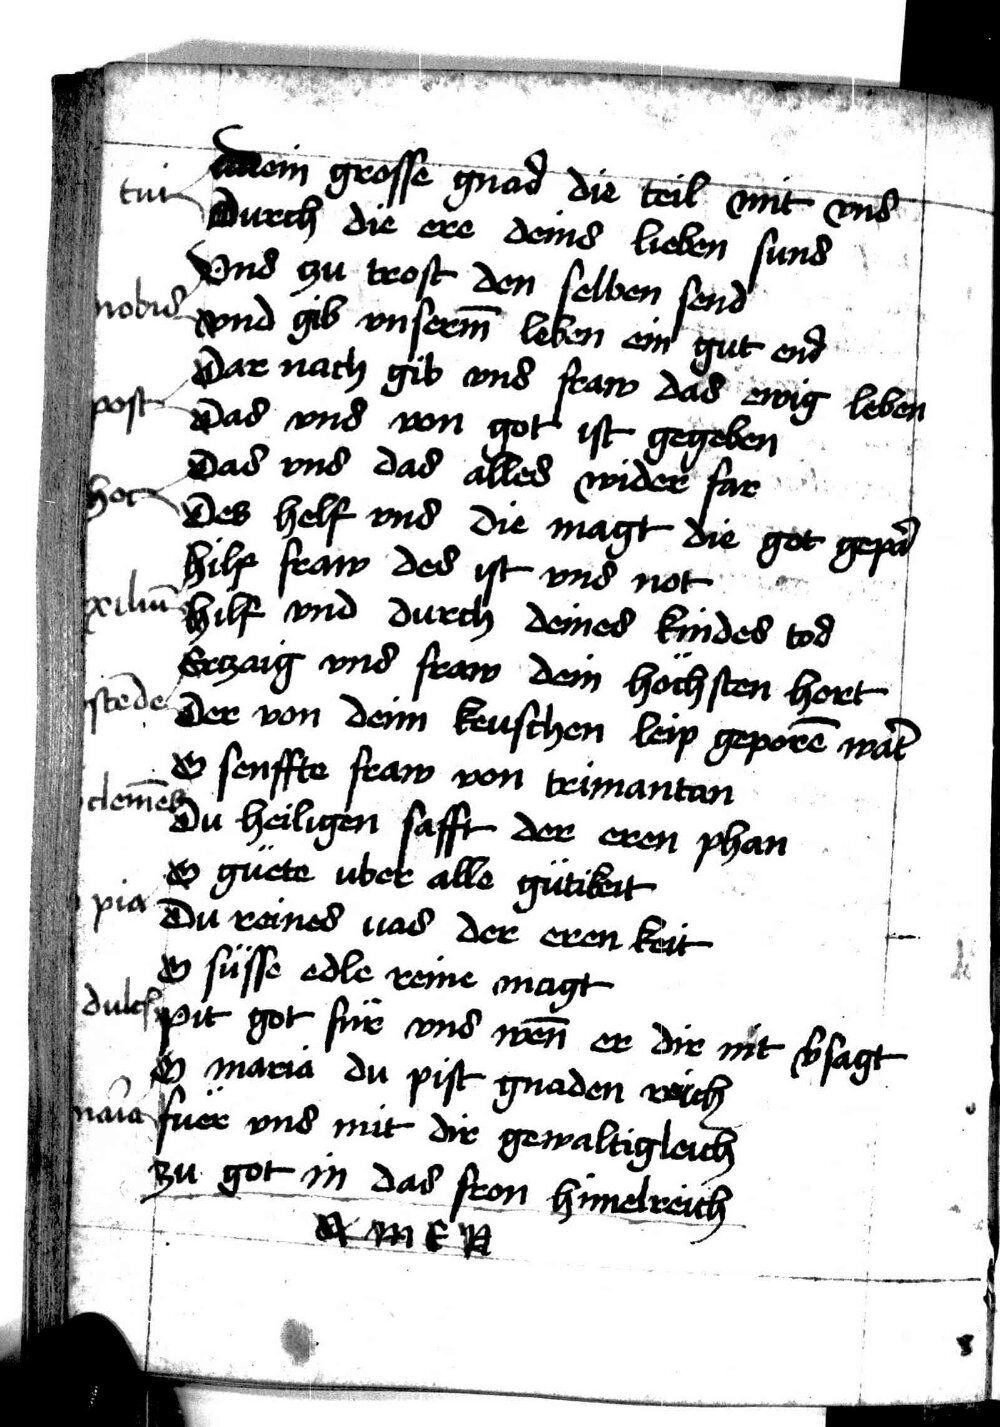 Dein grosse gnad die teil mit vns
tui
Durch die ere deins lieben suns
Vns zu trost den selben send
nobis
vnd gib vnserm̄ leben ein gut end
Dar nach gib vns fraw das ewig leben
post
Das vns von got ist gegeben
Das vns das alles wider far
hoc
Des helf vns die magt die got gepar
hilf fraw des ist vns not
exiliū
hilf vns durch deines kindes tod
Erczaig vns fraw dein höchsten hort
ostēde
Der von deim keuschen leip geporē wart
O senffte fraw von trimantan
clemēs
Du heiligen safft der eren phan
O güete uber alle gütikeit
o pia
Du reines uas der eren keit
O süsse edle reine magt
dulcis
Pit got für vns wen̄ er dir nit v̄sagt
O maria du pist gnaden reich
maria
füer vns mit dir gewaltigleich
zu got in das fron himelreich
AMEN